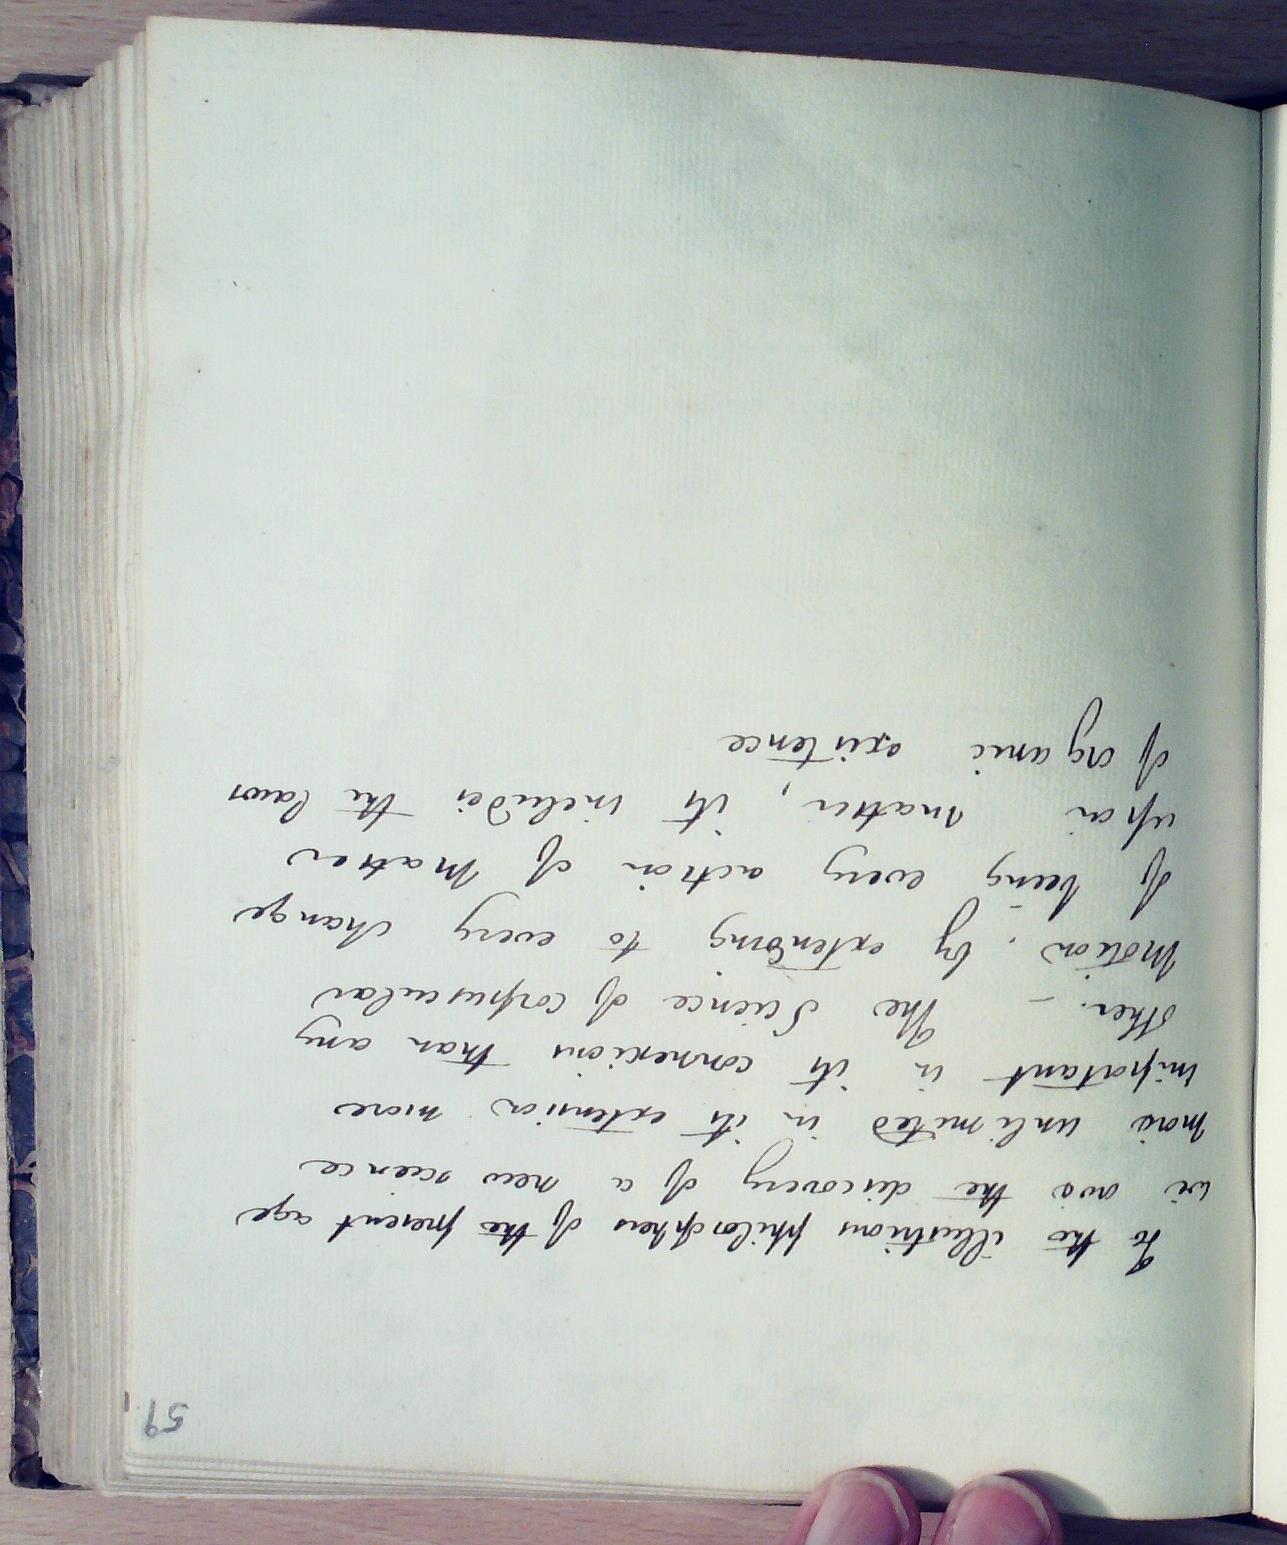 59
To the illustrious philosophers of the present age
we owe the discovery of a new science
more unlimited in its extension more
important in its connexions than any
other. - The Science of corpuscular
Motion. by extending to every change
of being every action of Matter
upon matter, it includes the laws
of organic existence